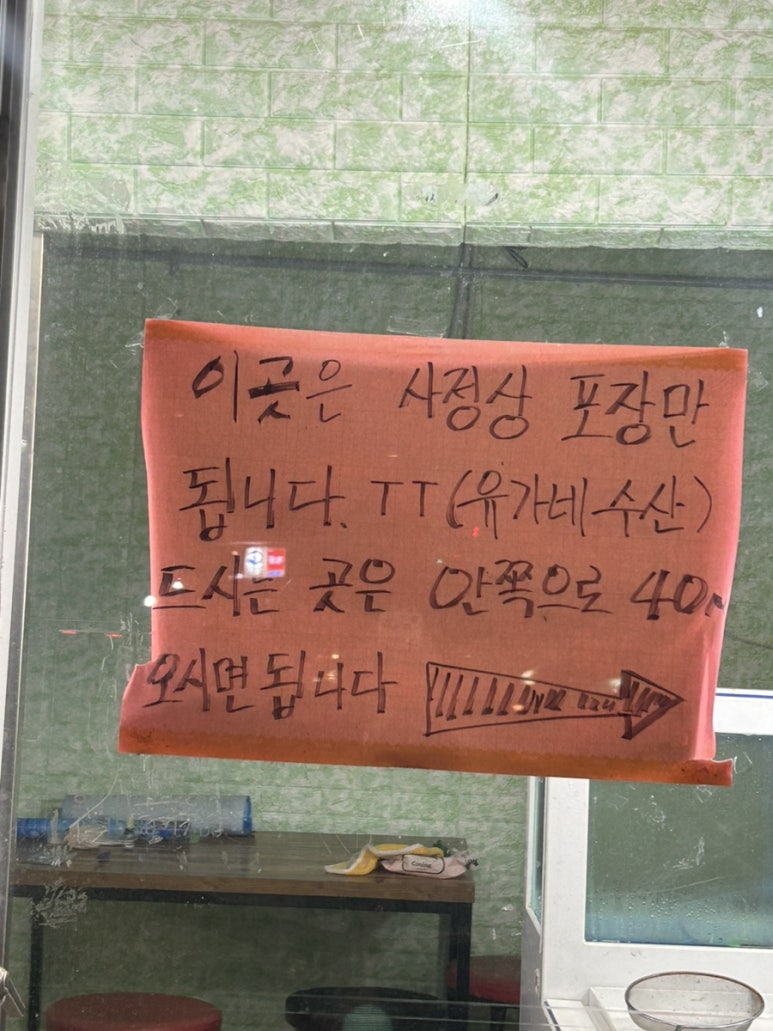 이곳은 사정상 포장만
됩니다. TT (유가네수산)
드시는 곳은 안쪽으로 40m
오시면 됩니다